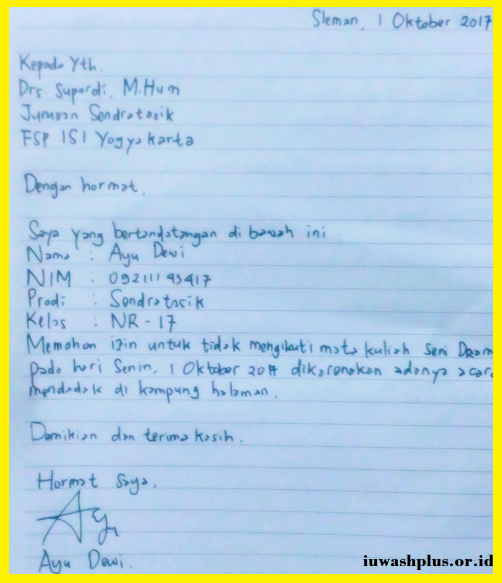 Sleman, 1 Oktober 2017
Kepada Yth.
Drs. Supardi, M.Hum
Jurusan Sendratasik
FSP ISI Yogyakarta
Dengan hormat,
Saya yang bertandatangan di bawah ini :
Nama : Ayu Dewi
NIM : 09211143417
Prodi : Sendratasik
Kelas : NR - 17
Memohon izin untuk tidak mengikuti mata kuliah Seni Dram
pada hari Senin, 1 Oktober 2017 dikarenakan adanya acara
mendadak di kampung halaman.
Demikian dan terima kasih.
Hormat Saya,
Ayu Dewi.
iuwashplus.or.id